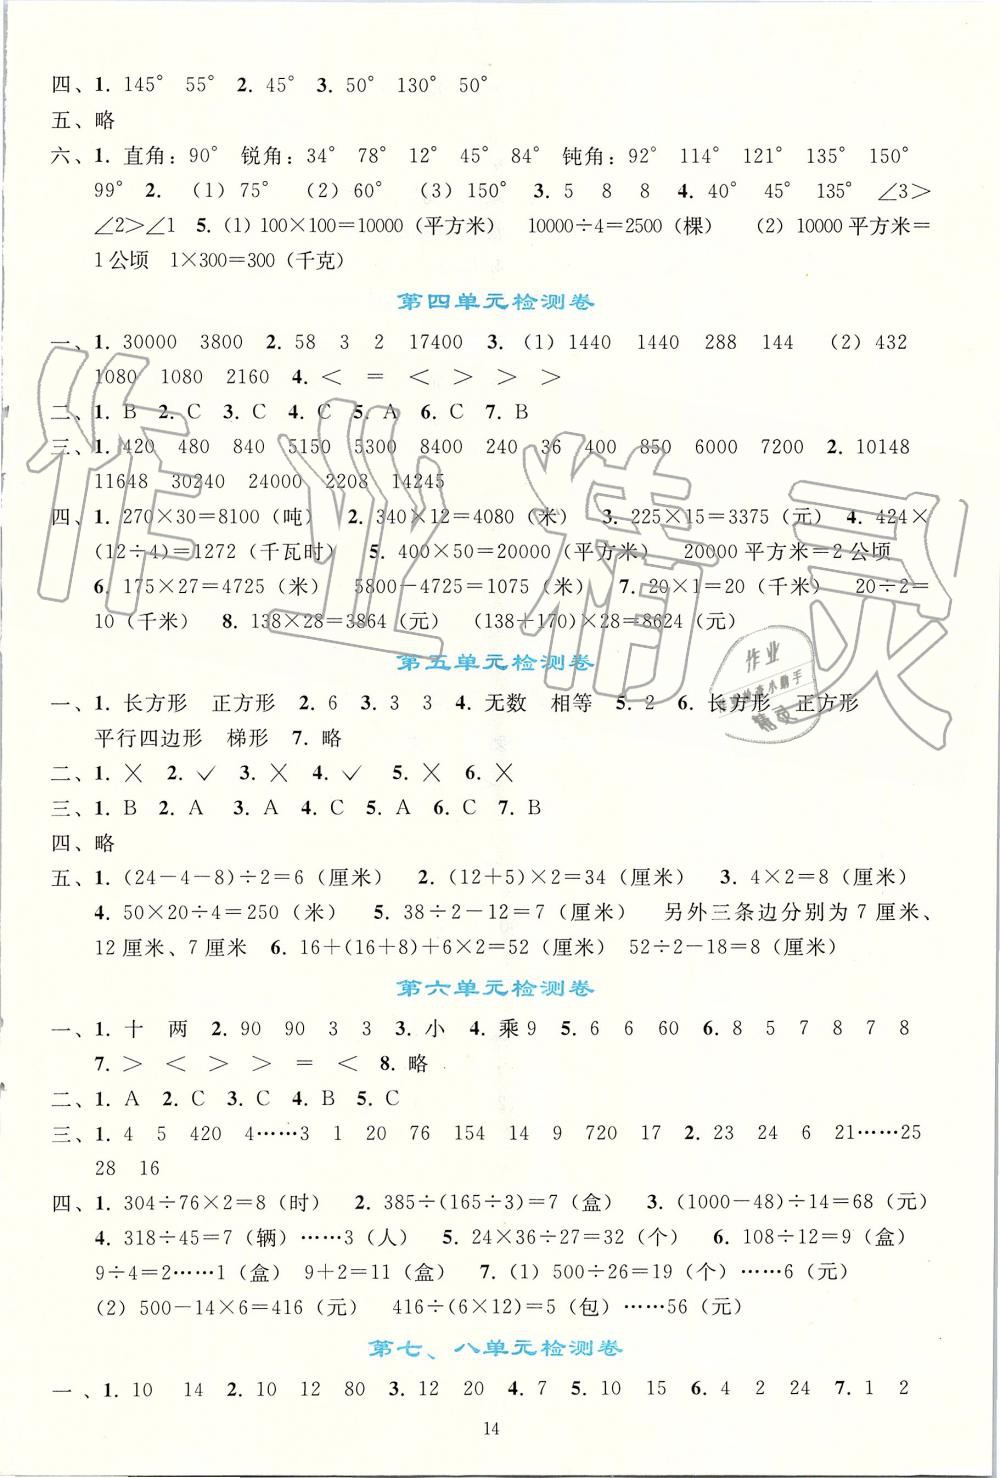 四、1. 145° 55° 2. 45° 3. 50° 130° 50°
五、略
六、1. 直角：90° 锐角：34° 78° 12° 45° 84° 钝角：92° 114° 121° 135° 150°
99° 2. （1）75° （2）60° （3）150° 3. 5 8 8 4. 40° 45° 135° ∠3＞
∠2＞∠1 5.（1）100×100＝10000（平方米） 10000÷4＝2500（棵） （2）10000平方米＝
1公顷 1×300＝300（千克）
第四单元检测卷
一、1. 30000 3800 2. 58 3 2 17400 3.（1）1440 1440 288 144 （2）432
1080 1080 2160 4. ＜ ＝ ＜ ＞ ＞ ＞
二、1. B 2. C 3. C 4. C 5. A 6. C 7. B
三、1. 420 480 840 5150 5300 8400 240 36 400 850 6000 7200 2. 10148
11648 30240 24000 2208 14245
四、1. 270×30＝8100（吨） 2. 340×12＝4080（米） 3. 225×15＝3375（元） 4. 424×
(12÷4)＝1272（千瓦时） 5. 400×50＝20000（平方米） 20000平方米＝2公顷
6. 175×27＝4725（米） 5800－4725＝1075（米） 7. 20×1＝20（千米） 20÷2＝
10（千米） 8. 138×28＝3864（元） (138＋170)×28＝8624（元）
第五单元检测卷
一、1. 长方形 正方形 2. 6 3. 3 3 4. 无数 相等 5. 2 6. 长方形 正方形
平行四边形 梯形 7. 略
二、1. ╳ 2. ✓ 3. ╳ 4. ✓ 5. ╳ 6. ╳
三、1. B 2. A 3. A 4. C 5. A 6. C 7. B
四、略
五、1. (24－4－8)÷2＝6（厘米） 2. (12＋5)×2＝34（厘米） 3. 4×2＝8（厘米）
4. 50×20÷4＝250（米） 5. 38÷2－12＝7（厘米） 另外三条边分别为7厘米、
12厘米、7厘米 6. 16＋(16＋8)＋6×2＝52（厘米） 52÷2－18＝8（厘米）
第六单元检测卷
一、1. 十 两 2. 90 90 3 3 3. 小 4. 乘9 5. 6 6 60 6. 8 5 7 8 7 8
7. ＞ ＜ ＞ ＞ ＝ ＜ 8. 略
二、1. A 2. C 3. C 4. B 5. C
三、1. 4 5 420 4……3 1 20 76 154 14 9 720 17 2. 23 24 6 21……25
28 16
四、1. 304÷76×2＝8（时） 2. 385÷(165÷3)＝7（盒） 3. (1000－48)÷14＝68（元）
4. 318÷45＝7（辆）……3（人） 5. 24×36÷27＝32（个） 6. 108÷12＝9（盒）
9÷4＝2……1（盒） 9＋2＝11（盒） 7.（1）500÷26＝19（个）……6（元）
（2）500－14×6＝416（元） 416÷(6×12)＝5（包）……56（元）
第七、八单元检测卷
一、1. 10 14 2. 10 12 80 3. 12 20 4. 7 5. 10 15 6. 4 2 24 7. 1 2
14
作业精灵
作业
精灵